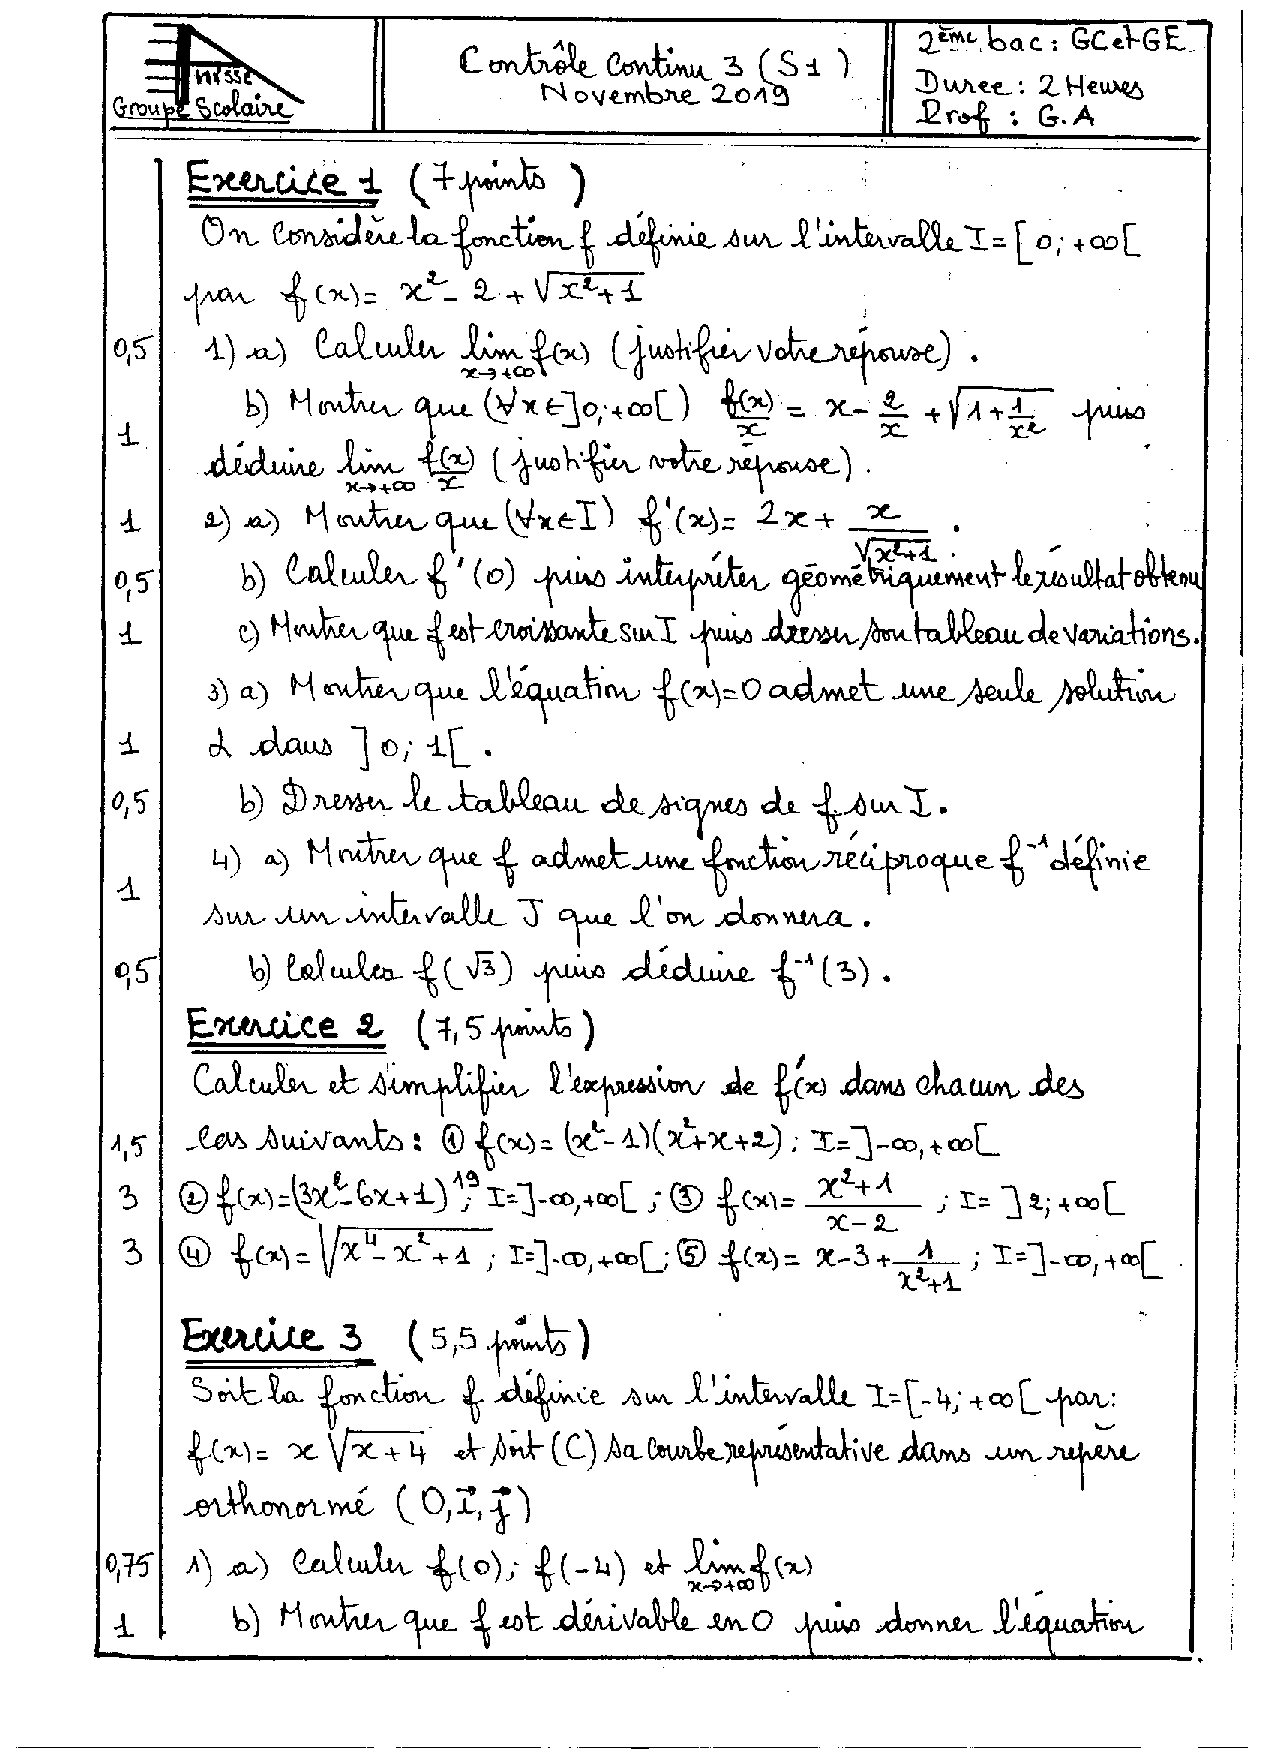 Anisse
Groupe Scolaire
Contrôle Continu 3 (S1)
Novembre 2019
2ème bac : GC et GE
Durée : 2 Heures
Prof : G.A
Exercice 1 (7 points)
On considère la fonction f définie sur l'intervalle I=[0;+∞[
par f(x)= x²- 2 + √(x²+1)
0,5 1) a) Calculer lim f(x) (justifier votre réponse).
x→+∞
b) Montrer que (∀x∈]0;+∞[) f(x)/x = x - 2/x + √(1+1/x²) puis
1 déduire lim f(x)/x (justifier votre réponse).
x→+∞
1 2) a) Montrer que (∀x∈I) f'(x)= 2x + x/√(x²+1).
0,5 b) Calculer f'(0) puis interpréter géométriquement le résultat obtenu
1 c) Montrer que f est croissante sur I puis dresser son tableau de variations.
3) a) Montrer que l'équation f(x)=0 admet une seule solution
1 α dans ]0;1[.
0,5 b) Dresser le tableau de signes de f sur I.
4) a) Montrer que f admet une fonction réciproque f⁻¹ définie
1 sur un intervalle J que l'on donnera.
0,5 b) Calculer f(√3) puis déduire f⁻¹(3).
Exercice 2 (7,5 points)
Calculer et simplifier l'expression de f'(x) dans chacun des
1,5 cas suivants : ① f(x)= (x²-1)(x²+x+2) ; I=]-∞,+∞[
3 ② f(x)=(3x²-6x+1)¹⁹ ; I=]-∞,+∞[ ; ③ f(x)= (x²+1)/(x-2) ; I= ]2;+∞[
3 ④ f(x)=√(x⁴-x²+1) ; I=]-∞,+∞[ ; ⑤ f(x)= x-3+1/(x²+1) ; I=]-∞,+∞[.
Exercice 3 (5,5 points)
Soit la fonction f définie sur l'intervalle I=[-4;+∞[ par :
f(x)= x√(x+4) et soit (C) sa courbe représentative dans un repère
orthonormé (O,i⃗,j⃗)
0,75 1) a) Calculer f(0); f(-4) et lim f(x)
x→+∞
1 b) Montrer que f est dérivable en 0 puis donner l'équation